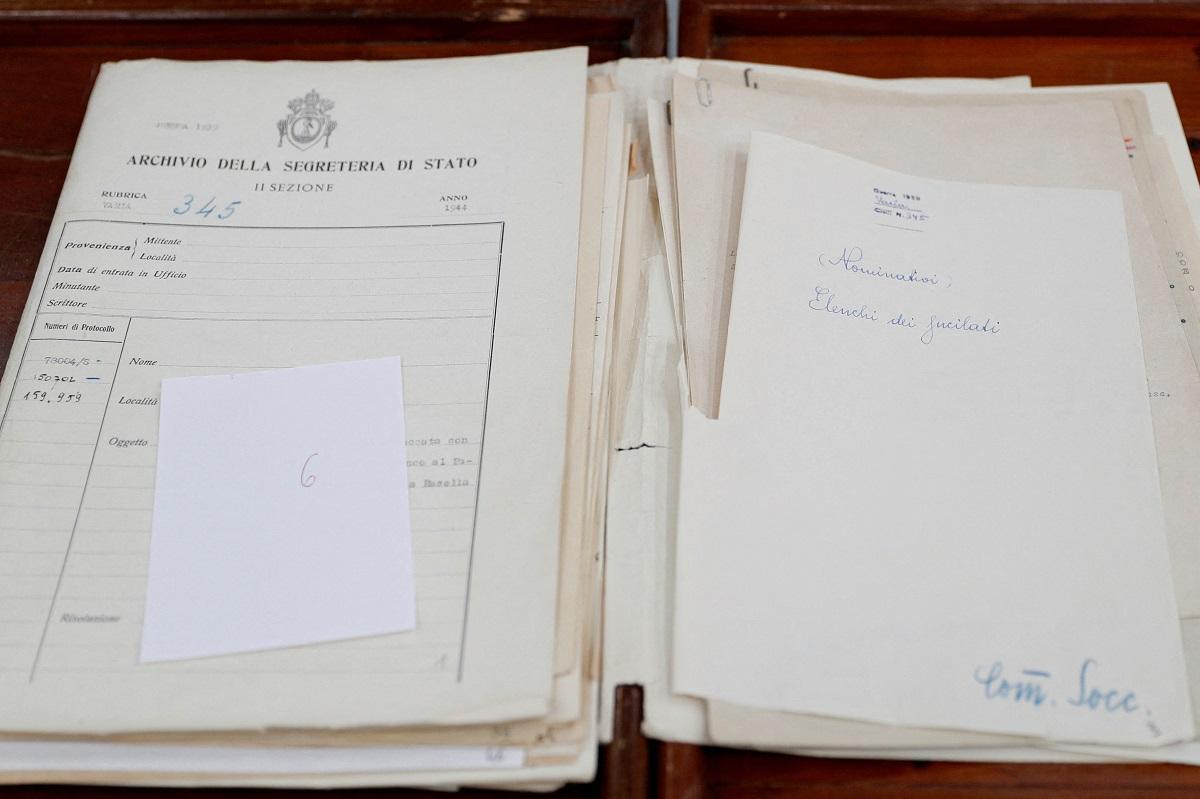 GUERRA 1939
ARCHIVIO DELLA SEGRETERIA DI STATO
II SEZIONE
RUBRICA
VARIA
345
ANNO
1944
Provenienza
Mittente
Località
Data di entrata in Ufficio
Minutante
Scrittore
Numeri di Protocollo
73004/S -
Nome
159.959
Località
Oggetto
con
al Pa-
Rasella
6
Risoluzione
1
Guerra 1939
Varia
N. 345
(Nominativi)
Elenchi dei fucilati
Com. Socc.